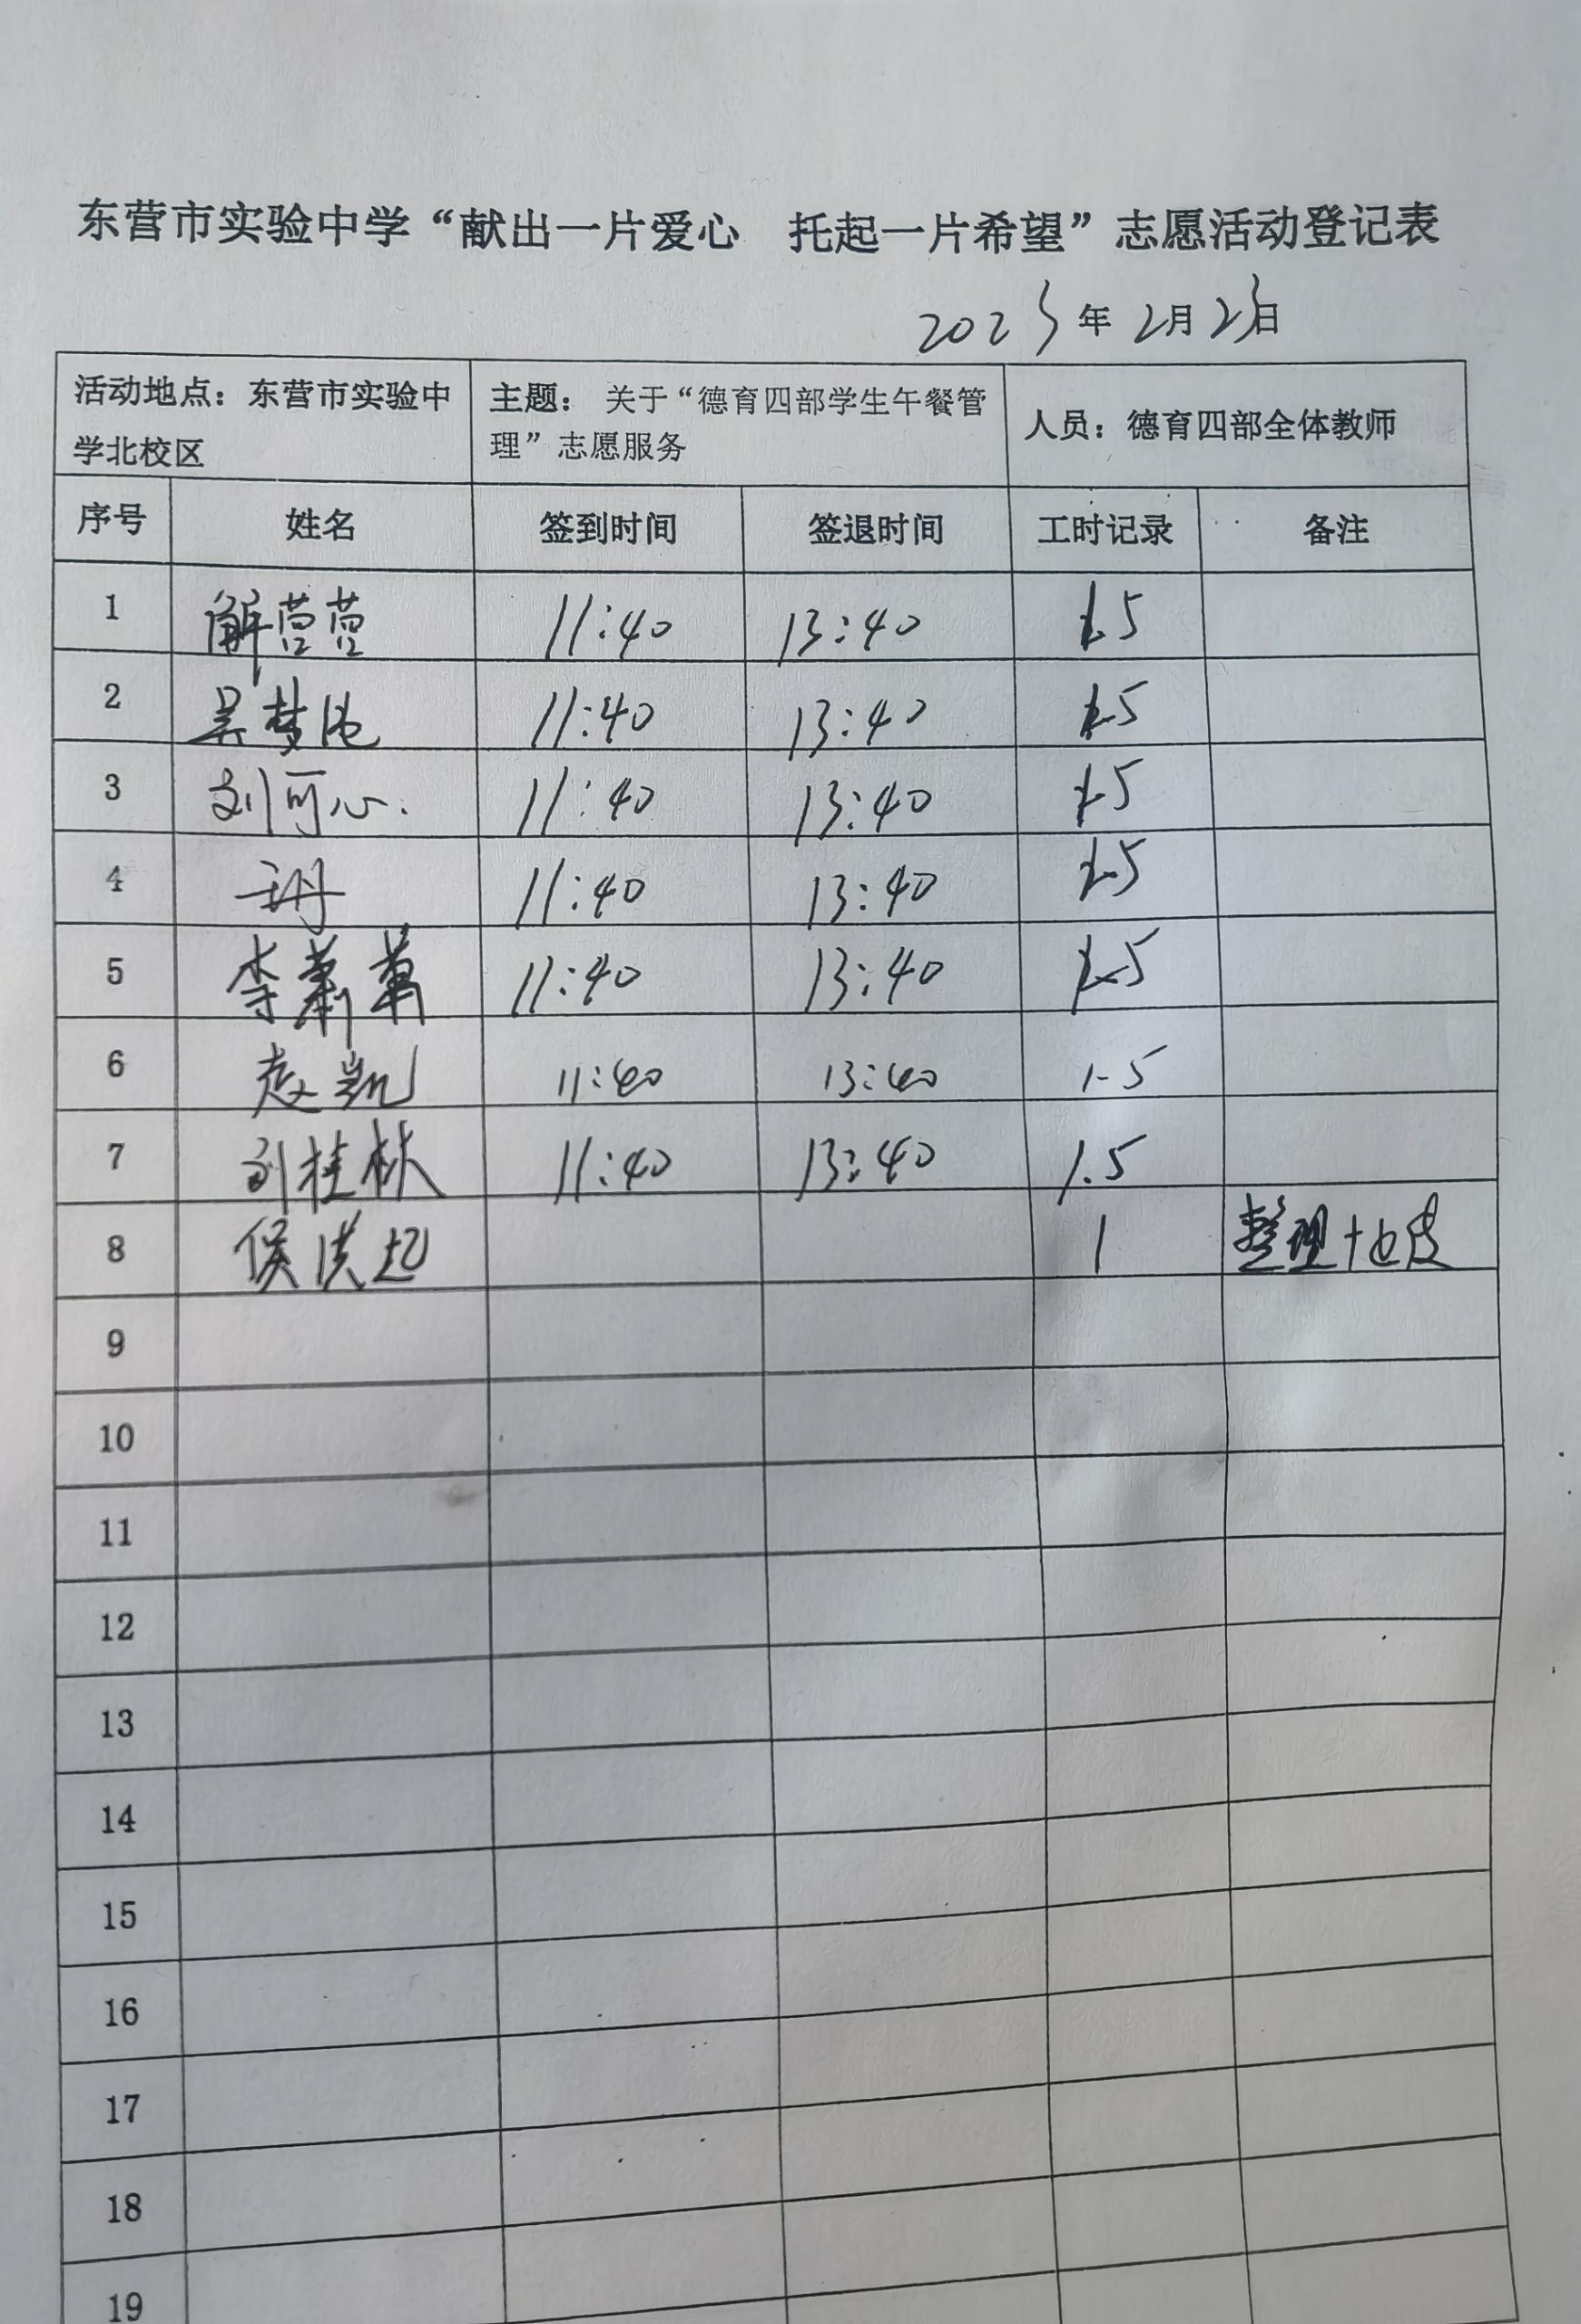 东营市实验中学“献出一片爱心 托起一片希望”志愿活动登记表
2023年2月23日
活动地点：东营市实验中学北校区 主题：关于“德育四部学生午餐管理”志愿服务 人员：德育四部全体教师
序号 姓名 签到时间 签退时间 工时记录 备注
1 解营营 11:40 13:40 1.5
2 吴梦 11:40 13:40 1.5
3 刘可心 11:40 13:40 1.5
4 11:40 13:40 1.5
5 李 11:40 13:40 1.5
6 赵凯 11:40 13:40 1.5
7 刘桂林 11:40 13:40 1.5
8 侯洪起 1 整理地皮
9
10
11
12
13
14
15
16
17
18
19